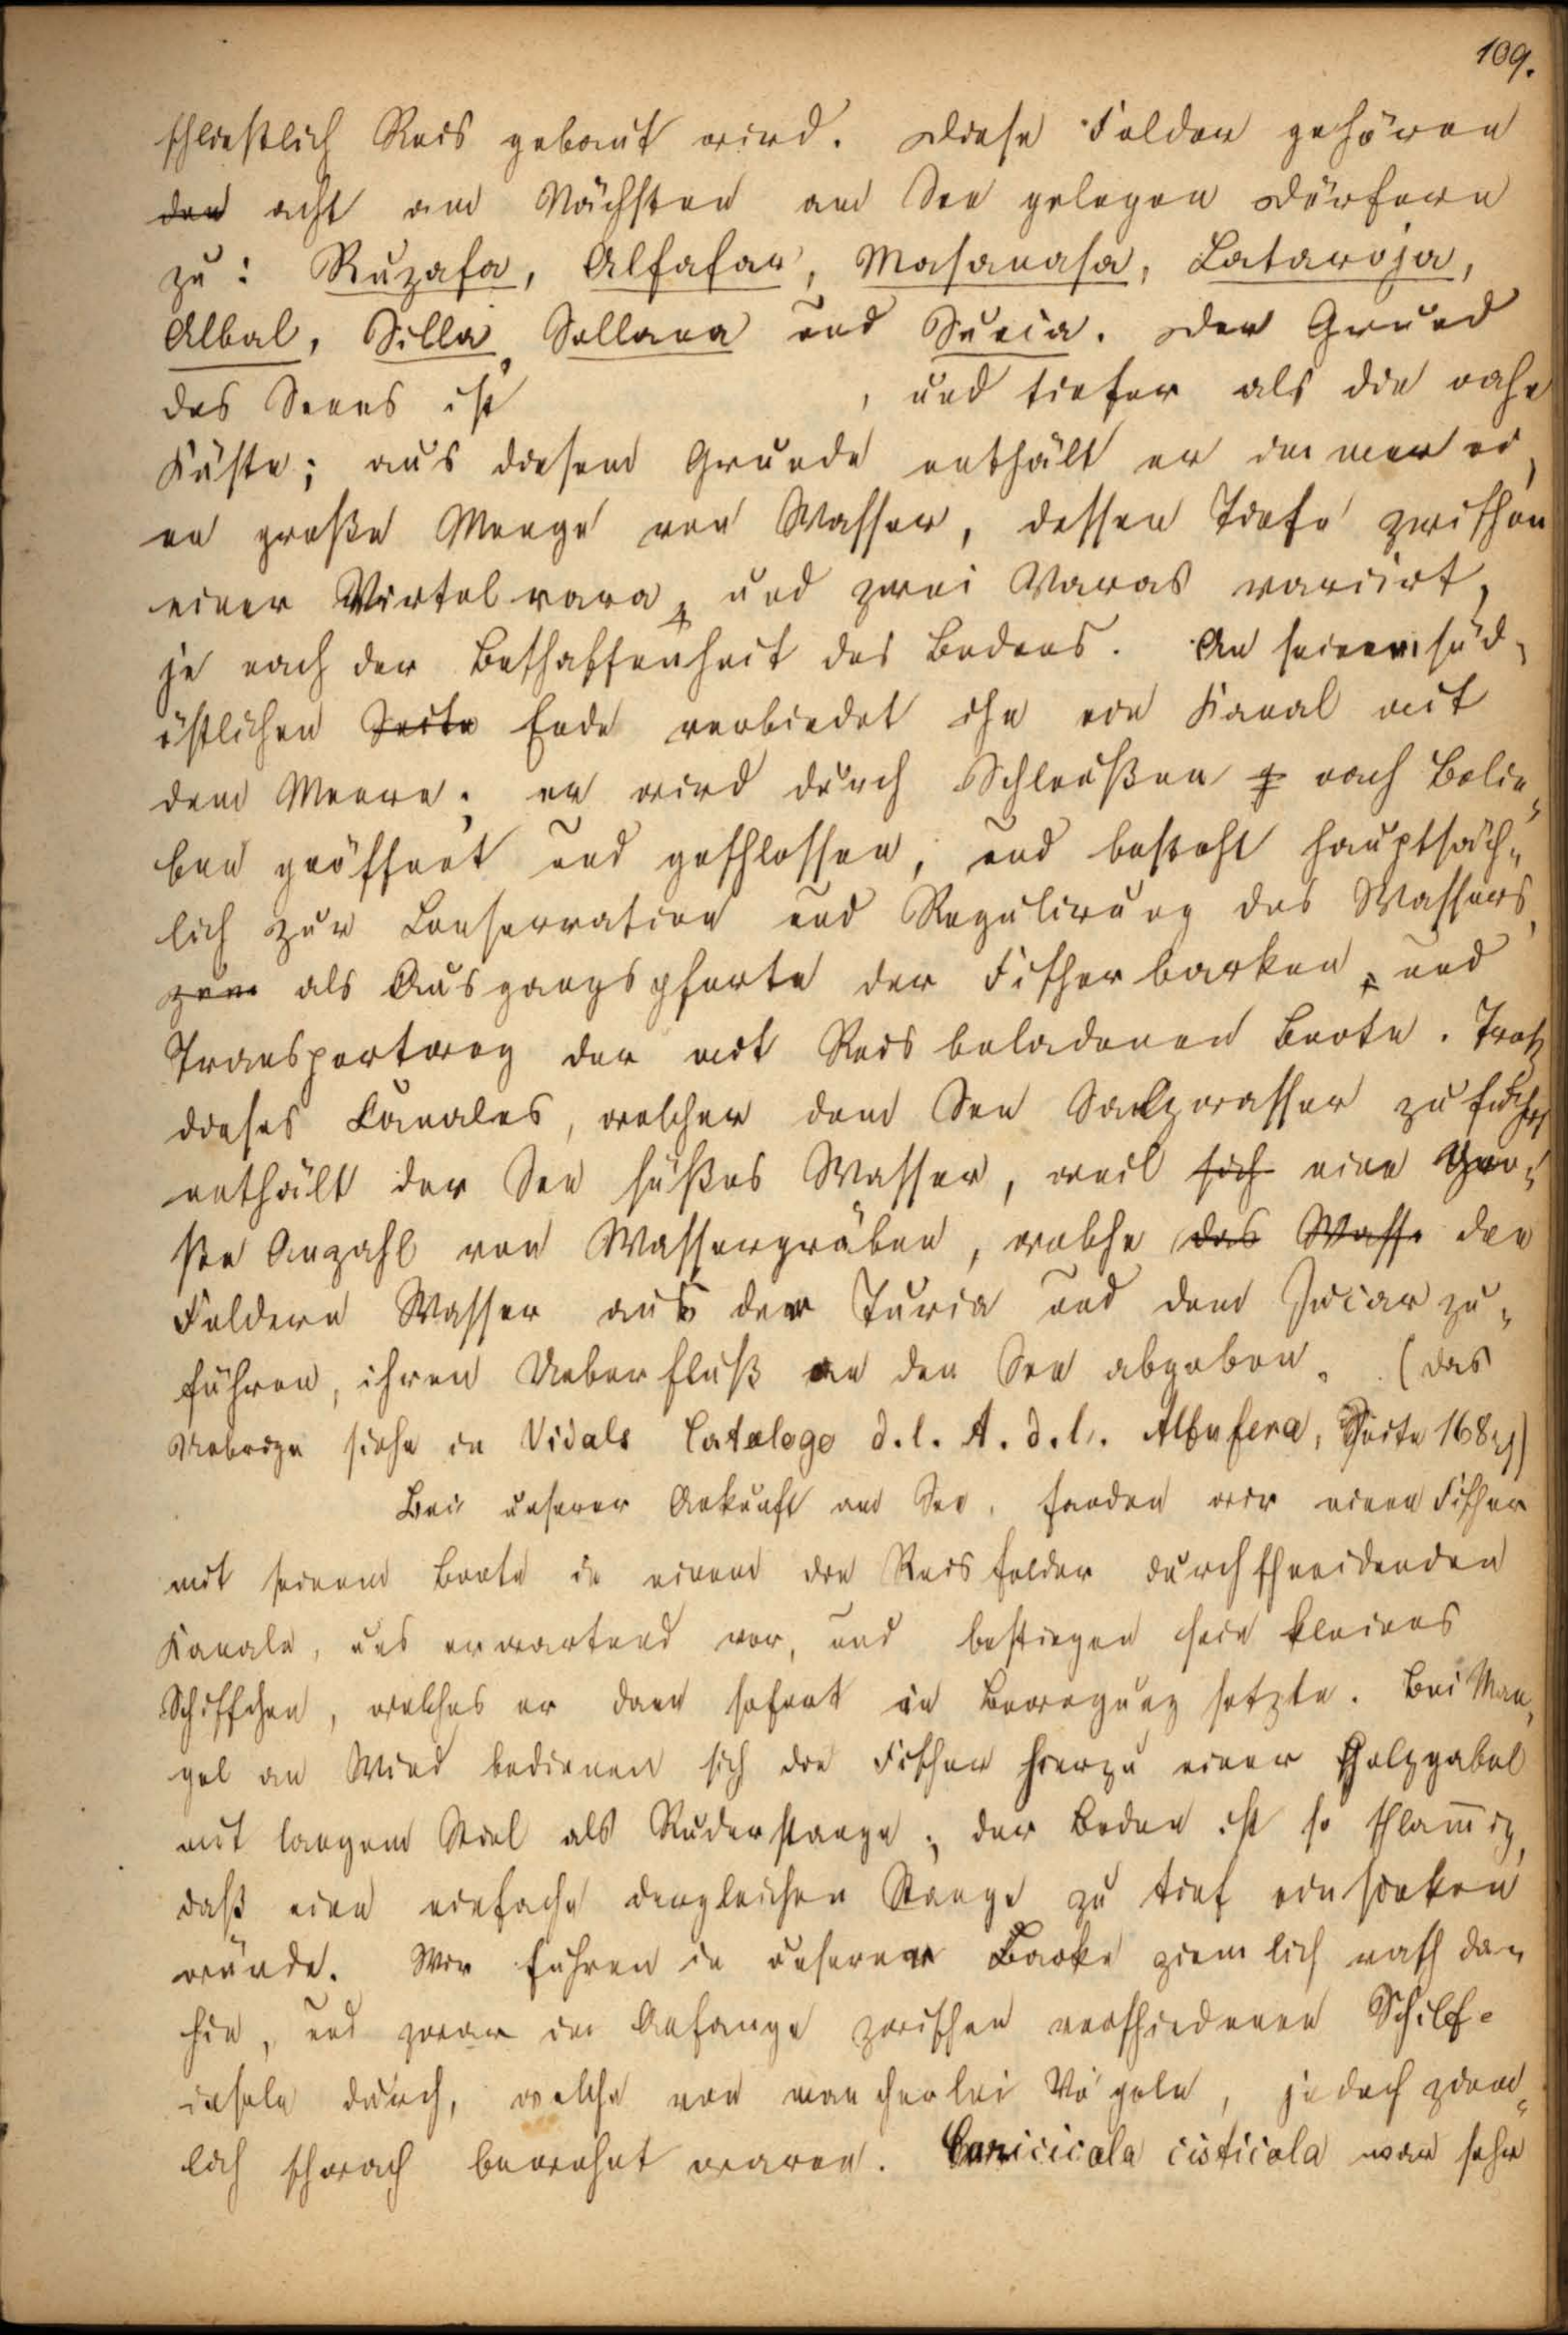 109.
schließlich Reis gebaut wird. Diese Felder gehören
den acht am Nächsten am See gelegen Dörfern
zu: Ruzafa, Alfafar, Masanasa, Cataroja,
Albal, Silla, Sollana und Sueca. Der Grund
des Seees ist , und tiefer als die nahe
Küste; aus diesem Grunde enthält er immer ei,
ne große Menge von Wasser, dessen Tiefe zwischen
einer Virtelvara, und zwei Varas variirt,
je nach der Beschaffenheit des Bodens. An seinem süd,
östlichen Seite Ende verbindet ihn ein Kanal mit
dem Meere; er wird durch Schleußen z nach Belie„
ben geöffnet und geschlossen, und besteht hauptsäch„
lich zur Conservation und Regulirung des Wassers,
zum als Ausgangspforte der Fischerbarken, und
Transportweg der mit Reis beladenen Boote. Trotz
dieses Canales, welcher dem See Salzwasser zuführt,
enthält der See süßes Wasser, weil sich eine gro„
ße Anzahl von Wassergräben, welche das Wasse den
Feldern Wasser aus der Turia und dem Jucar zu„
führen, ihren Ueberfluß an den See abgeben. (Das
Uebrige siehe in Vidals Catalogo d. l. A. d. l. Albufera, Seite 168 )
Bei unserer Ankunft am See, fanden wir einen Fischer
mit seinem Boote in einem die Reisfelder durchschneidenden
Kanale, uns erwartend vor, und bestiegen sein kleines
Schiffchen, welches er dann sofort in Bewegung setzte. Bei Man,
gel an Wind bedienen sich die Fischer hierzu einer Holzgabel
mit langem Stiel als Ruderstange; der Boden ist so schlam̄ig,
daß eine einfache dergleichen Stange zu tief einsinken
würde. Wir fuhren in unserer Barke ziemlich rasch da„
hin, und zwar im Anfange zwischen verschiedenen Schilf-
inseln durch, welche von mancherlei Vögeln, jedoch ziem„
lich schwach bewohnt waren. Caricicola cisticola war sehr